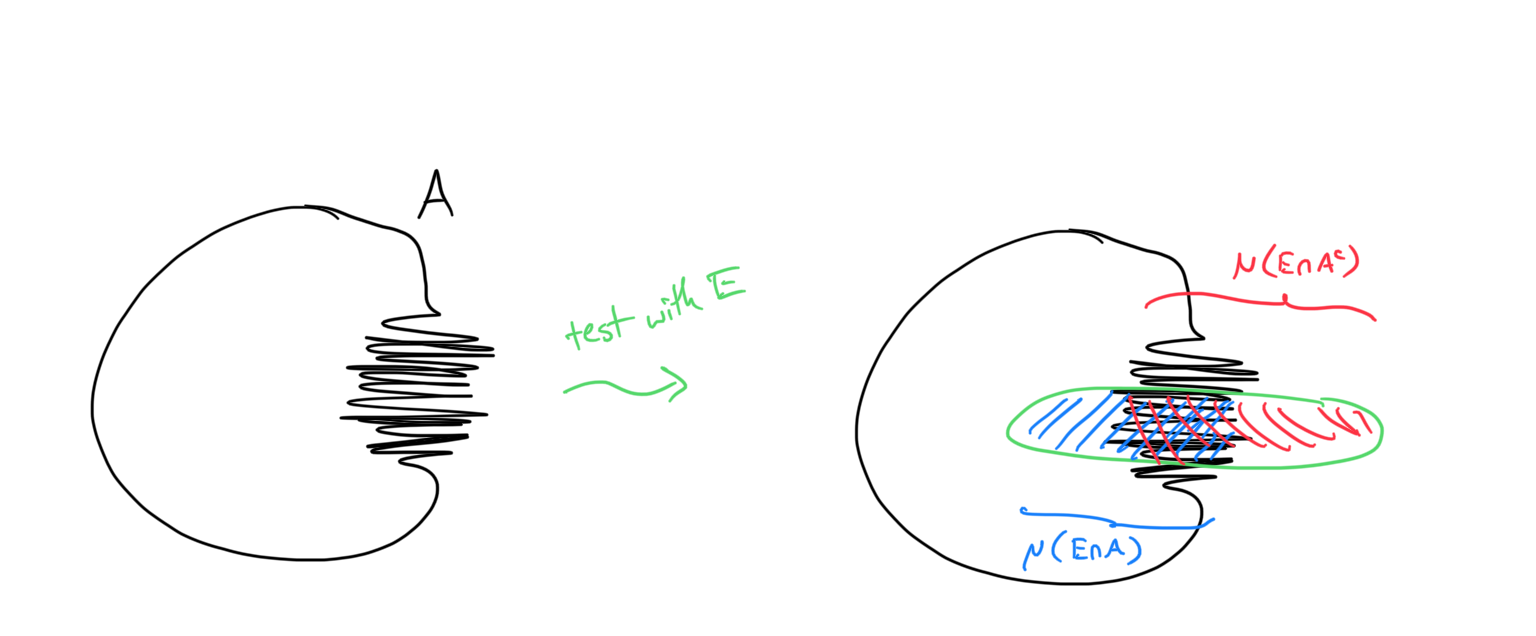 A
test with E
μ(E∩Aᶜ)
μ(E∩A)